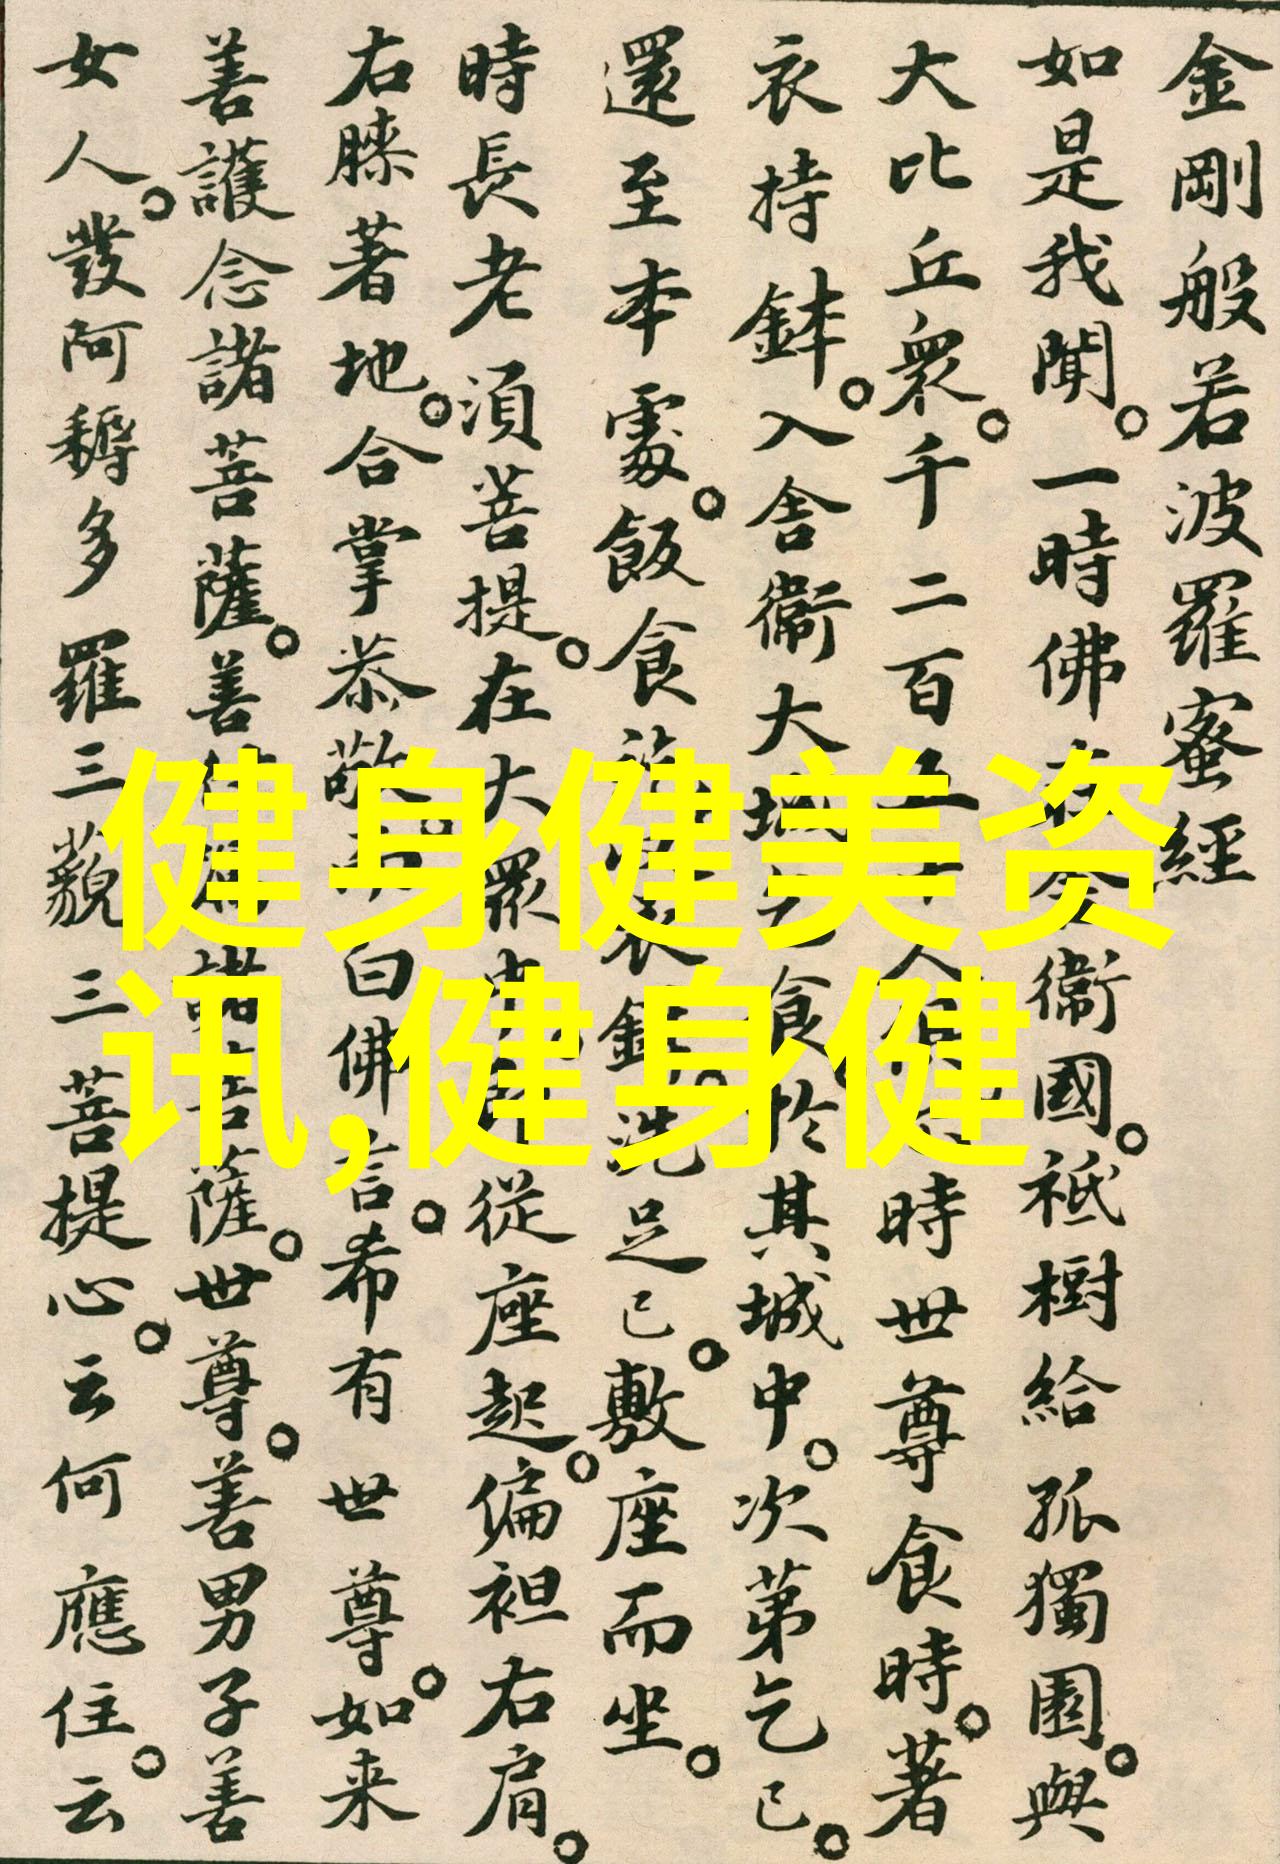 金剛般若波羅蜜經
如是我聞。一時佛在舍衞國。祗樹給孤獨園。與
大比丘衆。千二百五十人俱。時世尊食時。著
衣持鉢。入舍衞大城乞食。於其城中。次第乞已。
還至本處。飯食衣鉢。洗足已。敷座而坐。
時長老須菩提。在大衆中。即從座起。偏袒右肩。
右膝著地。合掌恭敬。而白佛言。希有世尊。如来
善護念諸菩薩。善付囑諸菩薩。世尊。善男子善
女人。發阿耨多羅三藐三菩提心。云何應住。云
健身健美资
讯,健身健